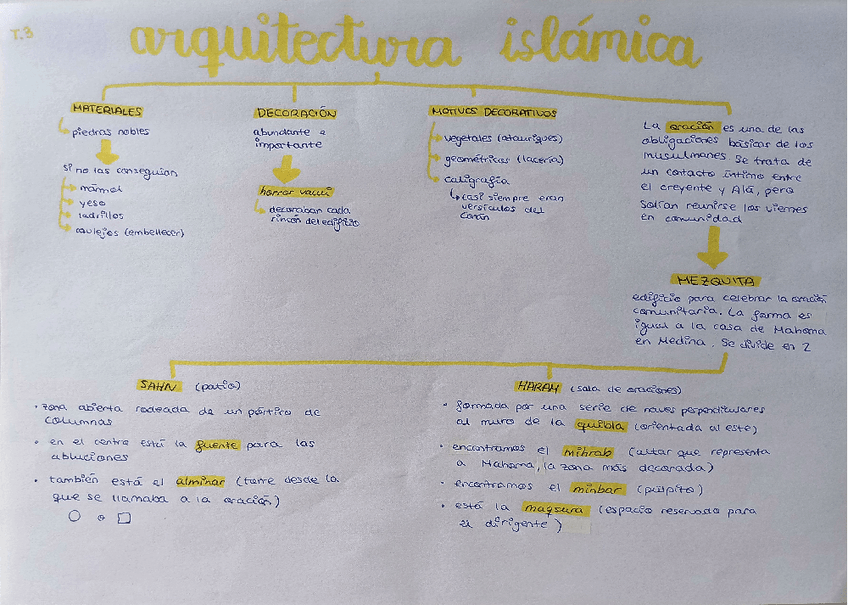 T.3
arquitectura islámica
MATERIALES
piedras nobles
si no las conseguían
mármol
yeso
ladrillos
azulejos (embellecer)
DECORACIÓN
abundante e
importante
horror vacui
decoraban cada
rincón del edificio
MOTIVOS DECORATIVOS
vegetales (atauriques)
geométricas (lacería)
caligrafía
casi siempre eran
versículos del
Corán
La oración es una de las
obligaciones básicas de los
musulmanes. Se trata de
un contacto íntimo entre
el creyente y Alá, pero
solían reunirse los viernes
en comunidad
MEZQUITA
edificio para celebrar la oración
comunitaria. La forma es
igual a la casa de Mahoma
en Medina. Se divide en 2
SAHN (patio)
• zona abierta rodeada de un pórtico de
columnas
• en el centro está la fuente para las
abluciones
• también está el alminar (torre desde la
que se llamaba a la oración)
o
HARAM (sala de oraciones)
• formada por una serie de naves perpendiculares
al muro de la quibla (orientada al este)
• encontramos el mihrab (altar que representa
a Mahoma, la zona más decorada)
• encontramos el minbar (púlpito)
• está la maqsura (espacio reservado para
el dirigente)